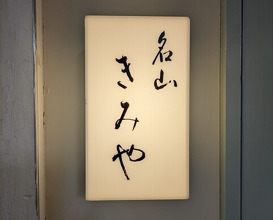 名山
きみや